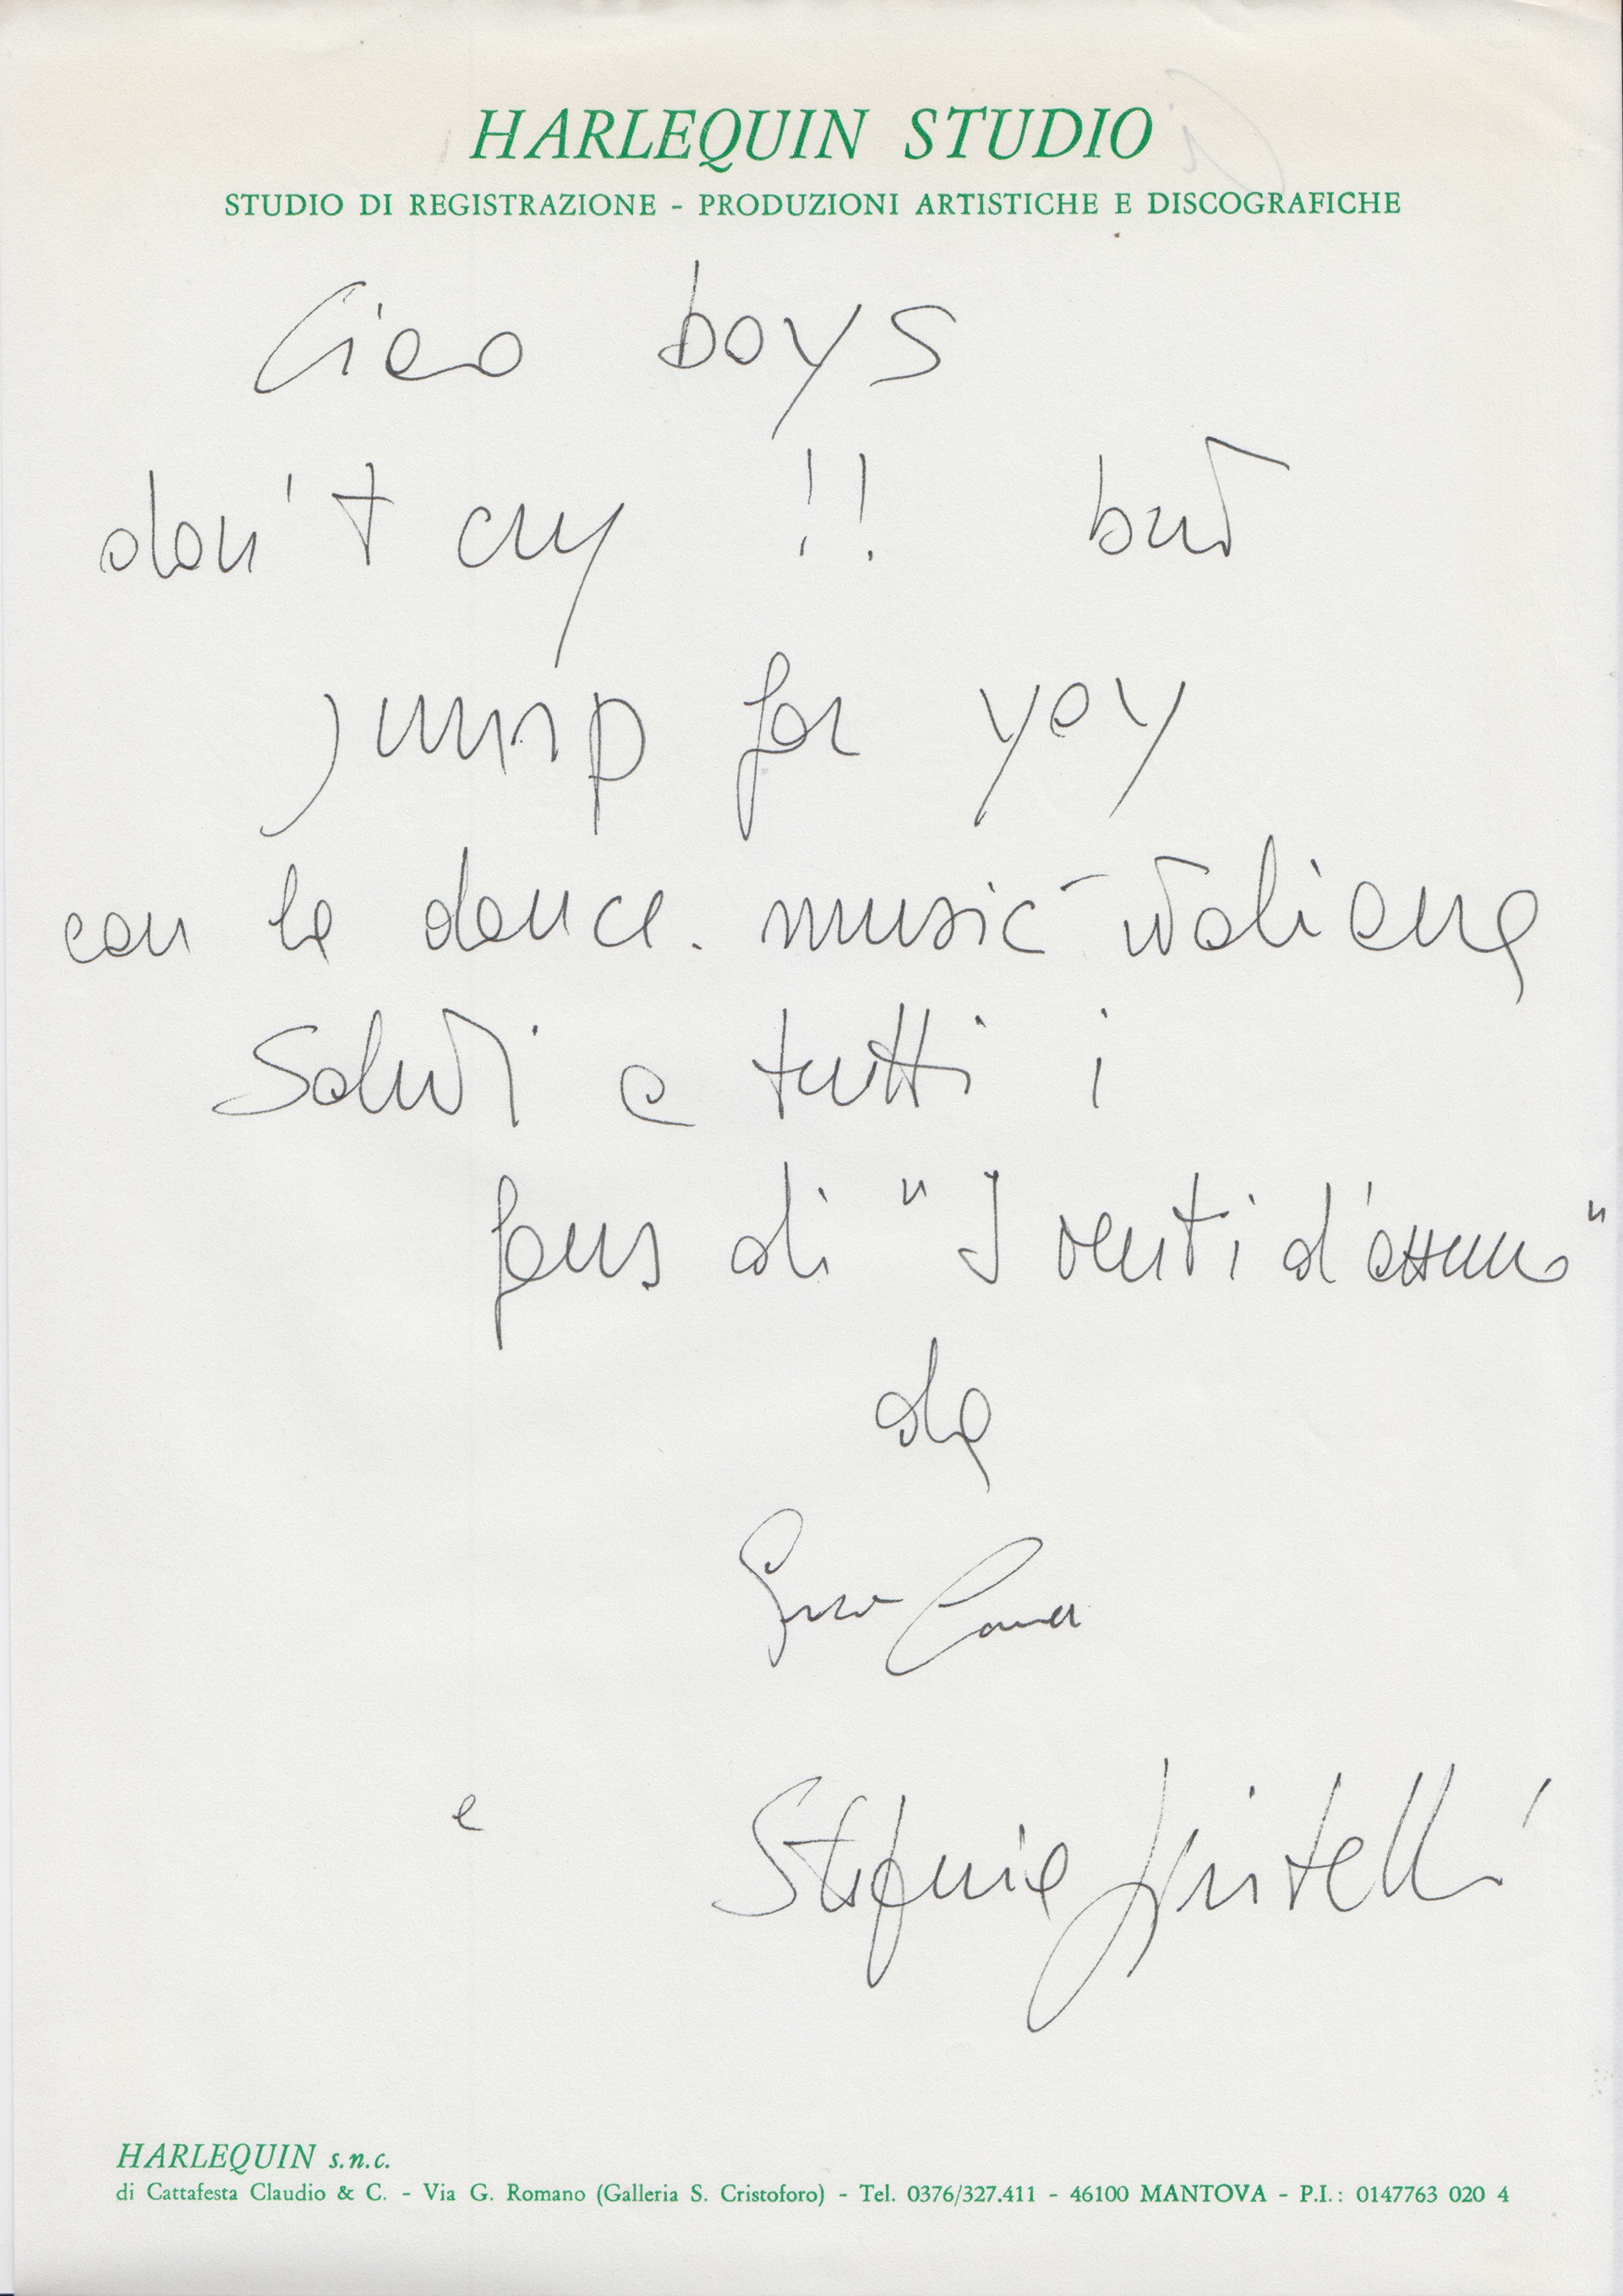 HARLEQUIN STUDIO
STUDIO DI REGISTRAZIONE - PRODUZIONI ARTISTICHE E DISCOGRAFICHE
Ciao boys
don't cry !! but
jump for yoy
con la dance-music-italiana
Saluti a tutti i
fans di "I venti d'azzurro"
da
e Stefania
HARLEQUIN s.n.c.
di Cattafesta Claudio & C. - Via G. Romano (Galleria S. Cristoforo) - Tel. 0376/327.411 - 46100 MANTOVA - P.I.: 0147763 020 4